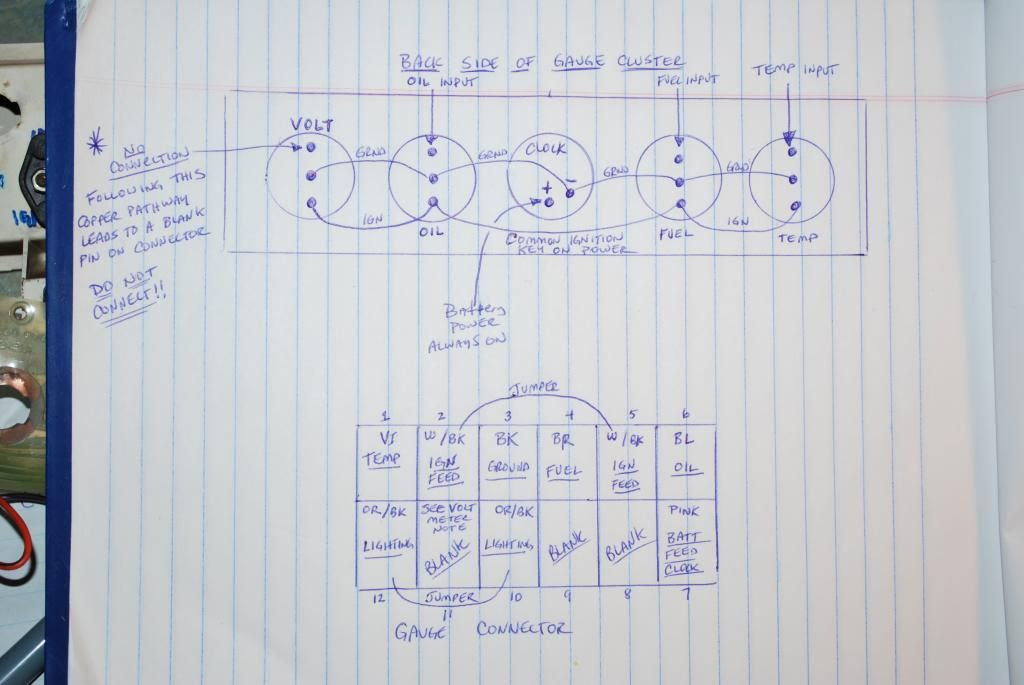 BACK SIDE OF GAUGE CLUSTER
OIL INPUT
FUEL INPUT
TEMP INPUT
VOLT
CLOCK
GRND
GRND
GRND
GRND
+
-
IGN
OIL
COMMON IGNITION
KEY ON POWER
FUEL
IGN
TEMP
* NO
CONNECTION
FOLLOWING THIS
COPPER PATHWAY
LEADS TO A BLANK
PIN ON CONNECTOR
DO NOT
CONNECT!!
Battery
POWER
ALWAYS ON
JUMPER
1 2 3 4 5 6
VI W/BK BK BR W/BK BL
TEMP IGN FEED GROUND FUEL IGN FEED OIL
OR/BK SEE VOLT METER NOTE OR/BK PINK
LIGHTING BLANK LIGHTING BLANK BLANK BATT FEED CLOCK
12 JUMPER 10 9 8 7
11
GAUGE CONNECTOR